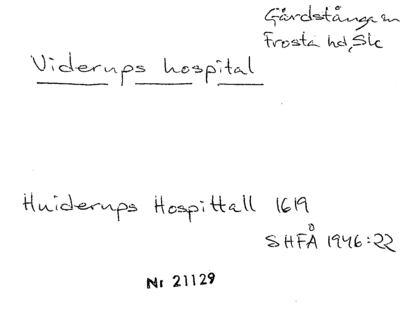 Gårdstånga sn
Frosta hd, Sk
Viderups hospital
Huiderups Hospittall 1619
SHFÅ 1946:22
Nr 21129